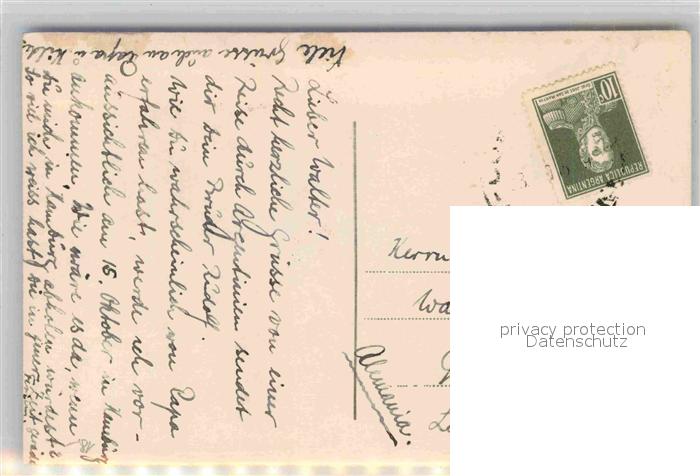 Lieber Walter!
Recht herzliche Grüsse von einer
Reise durch Argentinien sendet
dir dein Bruder Rudolf.
Wie du wahrscheinlich von Papa
erfahren hast, werde ich vor-
aussichtlich am 15. Oktober in Hamburg
ankommen. Wie wäre es da, wenn
du mich in Hamburg abholen würdest?
So viel ich weiss hast du in jener Zeit gerade
Viele Grüsse auch an Papa u.
Herrn
Wa
Alemania.
10
REPUBLICA ARGENTINA
privacy protection
Datenschutz